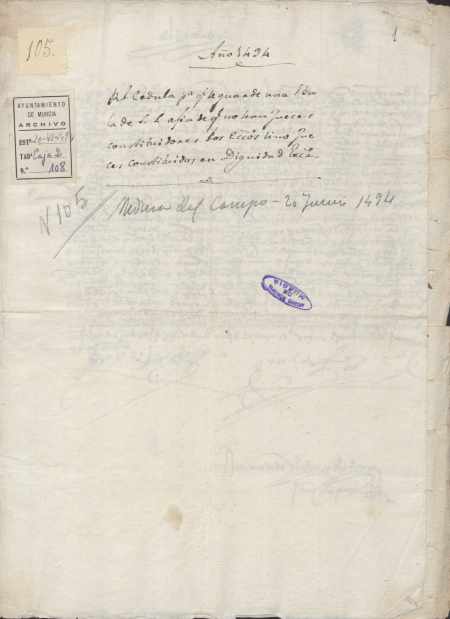 105.
1
Año 1494
AYUNTAMIENTO
DE MURCIA
ARCHIVO
EST.
TAB.º Caja 2
N.º 108
Rl Cedula pª q se guarde una
de S. S. afin de q no sean jueces
los Eccos sino jue
ces constituidos en Dignidad Ecca
Nº 105
Medina del Campo - 20 Junio 1494